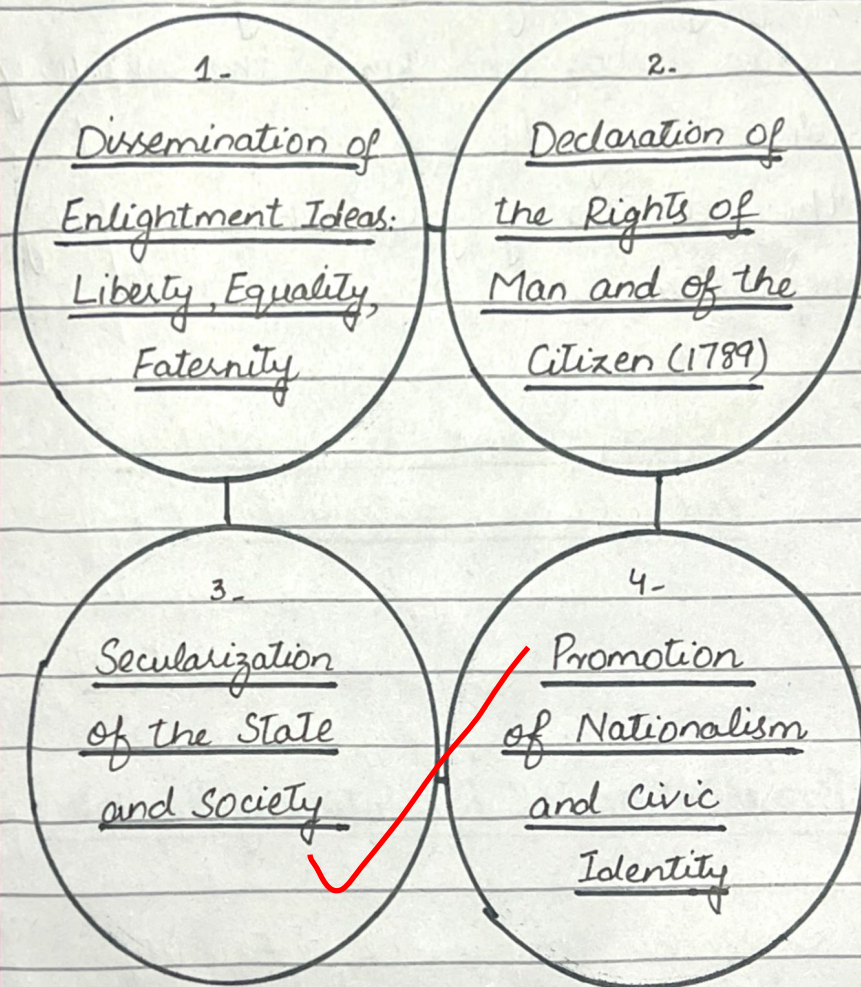 1-
Dissemination of
Enlightment Ideas:
Liberty, Equality,
Faternity
2-
Declaration of
the Rights of
Man and of the
Citizen (1789)
3-
Secularization
of the State
and Society
4-
Promotion
of Nationalism
and Civic
Identity